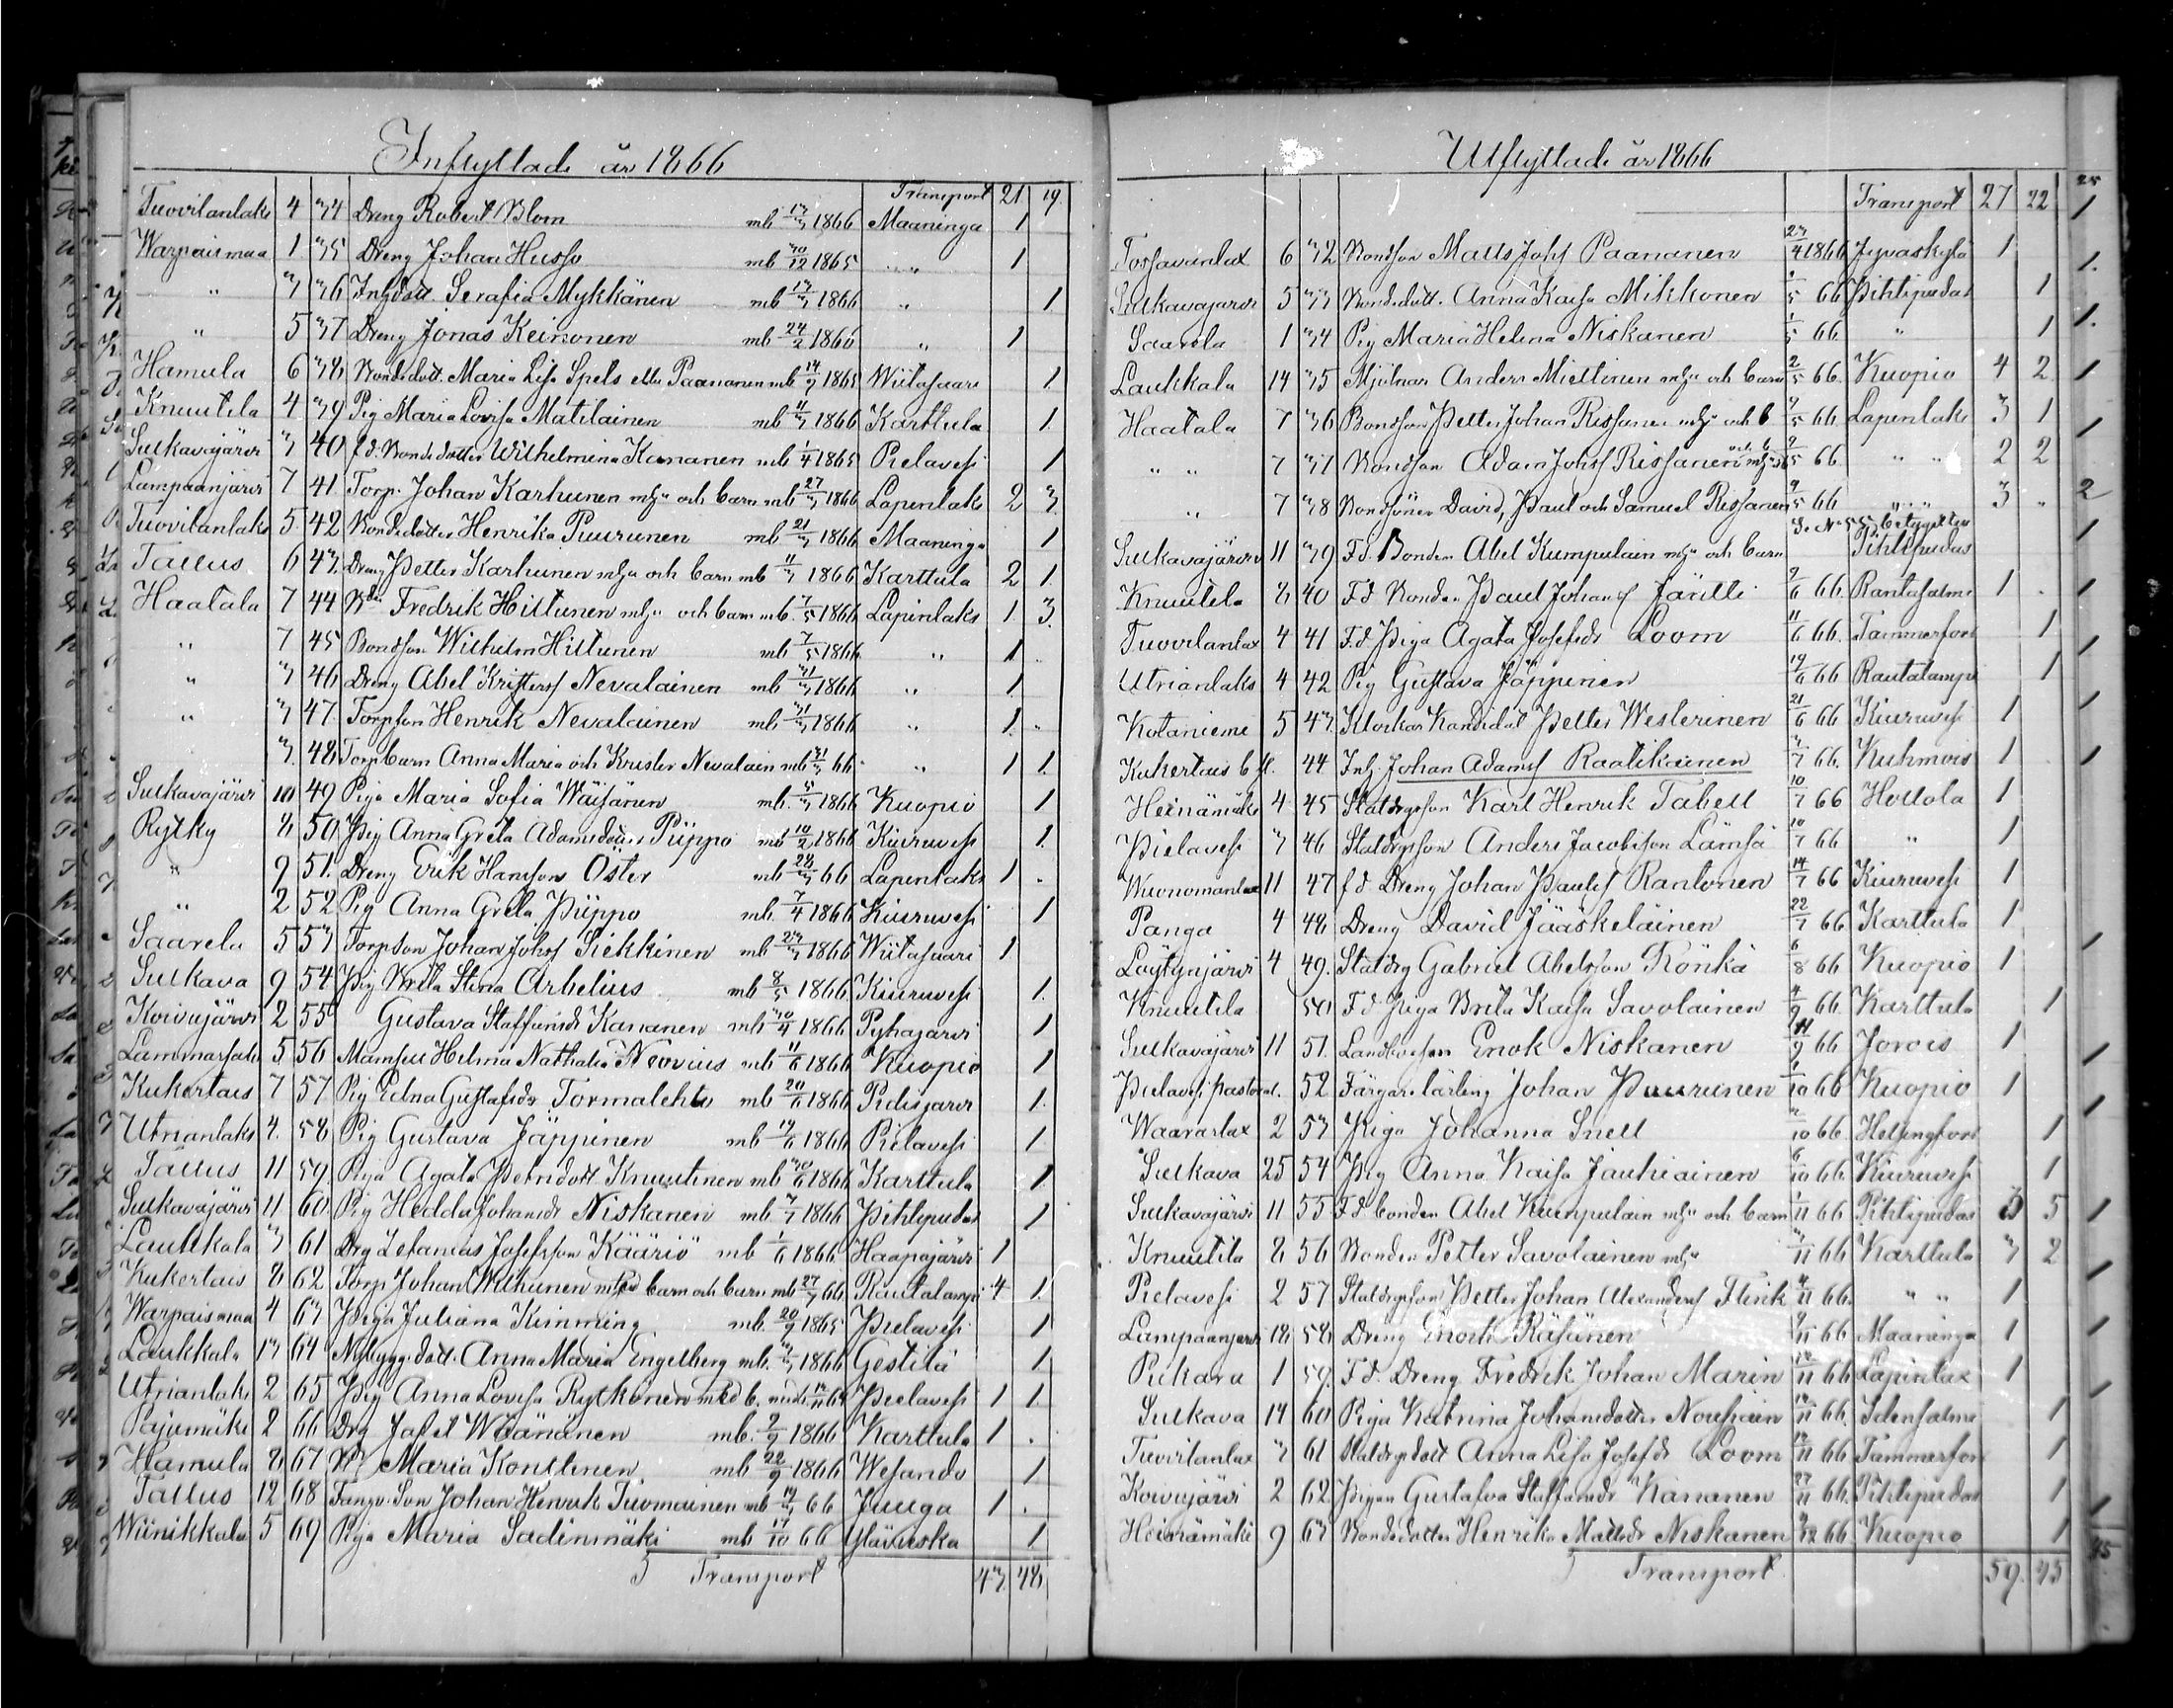 Inflyttade år 1866
Transport 21 19
Tuovilanlaks 4 34 Dreng Robert Blom mb 13/3 1866 Maaninga 1
Warpaismaa 1 35 Dreng Johan Husso mb 30/12 1865 " " 1
" 3 36 Inhdott. Serafia Mykkänen mb 13/3 1866 " 1
" 5 37 Dreng Jonas Keinonen mb 24/2 1866 " 1
Hamula 6 38 Bondedott. Maria Lisa Spels eller Paananen mb 14/9 1865 Wiitasaari 1
Knuutila 4 39 Pig Maria Lovisa Matilainen mb 11/3 1866 Karttula 1
Sulkavajärvi 3 40 f.d. Bondedotter Wilhelmina Kananen mb 1/4 1865 Pielavesi 1
Lampaanjärvi 7 41 Torp. Johan Karhunen m. hu och barn mb 27/3 1866 Lapinlaks 2 3
Tuovilanlaks 5 42 Bondedotter Henrika Puurunen mb 21/3 1866 Maaninga 1
Tallus 6 43 Dreng Petter Karhunen m. hu och barn mb 11/3 1866 Karttula 2 1
Haatala 7 44 Bdn Fredrik Hiltunen m. hu och barn mb 7/5 1866 Lapinlaks 1 3
" 7 45 Bondson Wilhelm Hiltunen mb 7/5 1866 " 1
" 3 46 Dreng Abel Kristerss Nevalainen mb 31/3 1866 " 1
" 3 47 Torpson Henrik Nevalainen mb 31/3 1866 " 1
3 48 Torpbarn Anna Maria och Krister Nevalain mb 31/3 66 " 1 1
Sulkavajärvi 10 49 Piga Maria Sofia Wäisänen mb 5/3 1866 Kuopio 1
Rytky 8 50 Pig Anna Greta Adamsdotter Piippo mb 10/2 1866 Kiuruvesi 1
" 9 51 Dreng Erik Hansson Öster mb 28/3 66 Lapinlaks 1
" 2 52 Pig Anna Greta Piippo mb 7/4 1866 Kiuruvesi 1
Saarela 5 53 Torpson Johan Johss Siekkinen mb 23/3 1866 Wiitasaari 1
Sulkava 9 54 Pig Brita Stina Arhelius mb 8/5 1866 Kiuruvesi 1
Koivujärvi 2 55 Gustava Staffansdr Kananen mb 30/4 1866 Pyhäjärvi 1
Lammasalo 5 56 Mamsell Helma Nathalia Neovius mb 11/6 1866 Kuopio 1
Kukertais 7 57 Pig Edna Gustafsdr Tormalehto mb 20/6 1866 Pidisjärvi 1
Utrianlaks 4 58 Pig Gustava Jäppinen mb 19/6 1866 Pielavesi 1
Tallus 11 59 Piga Agata Petersdott Knuutinen mb 30/6 1866 Karttula 1
Sulkavajärvi 11 60 Pig Hedda Johansdr Niskanen mb 7/7 1866 Pihtipudas 1
Laukkala 3 61 Drg Zefanias Josefsson Kääriö mb 1/6 1866 Haapajärvi 1
Kukertais 8 62 Torp. Johan Wilhunen med barn och barn mb 27/7 66 Rautalampi 4 1
Warpaismaa 4 63 Piga Juliana Kimming mb 20/9 1865 Pielavesi 1
Laukkala 13 64 Nybygg.dott. Anna Maria Engelberg mb 3/3 1866 Gestilä 1
Utrianlaks 2 65 Pig Anna Lovisa Rytkönen med b. 11 64 Pielavesi 1 1
Pajumäki 2 66 Drg Jafet Wäänänen mb 2/9 1866 Karttula 1
Hamula 8 67 Maria Konttinen mb 22/9 1866 Wesando 1
Tallus 12 68 Johan Henrik Tuomainen mb 14/3 66 Juuga 1
Wiinikkala 5 69 Piga Maria Sadinmäki mb 17/10 66 Ylävieska 1
Transport 43 48
Utflyttade år 1866
Transport 27 22
Tossavanlax 6 32 Bondson Matts Johss Paananen 23/4 1866 Jyväskylä 1
Sulkavajärvi 5 33 Bondedott. Anna Kaisa Mikkonen 1/5 66 Pihtipudas 1
Saarela 1 34 Pig Maria Helena Niskanen 1/5 66 " 1
Laukkala 14 35 Mjölnar Anders Miettinen m. hu och barn 2/5 66 Kuopio 4 2
Haatala 7 36 Bondson Petter Johan Rissanen m. hu och b 7/5 66 Lapinlaks 3 1
" " 7 37 Bondson Adam Johss Rissanen m. hu och b 7/5 66 " " 2 2
" 7 38 Bondsöner David, Paul och Samuel Rissanen 7/5 66 " " 3 "
Se No 55 betygetten
Sulkavajärvi 11 39 F.d. Bonden Abel Kumpulain m. hu och barn Pihtipudas
Knuutila 8 40 F.d. Bonden Paul Johanss Jäntti 2/6 66 Rantasalmi 1
Tuovilanlax 4 41 F.d. Piga Agata Josefsdr Loom 11/6 66 Tammerfors 1
Utrianlaks 4 42 Pig Gustava Jäppinen 19/6 66 Rautalampi 1
Kotaniemi 5 43 Klockar Kandidat Petter Westerinen 21/6 66 Kiuruvesi 1
Kukertais b fl. 44 Inh. Johan Adamss Raatikainen 3/7 66 Kuhmois 1
Heinämäki 4 45 Staldrgson Karl Henrik Tabell 10/7 66 Hollola 1
Pielavesi 3 46 Staldrgson Anders Jacobsson Lämsä 10/7 66 " 1
Wuonomanlax 11 47 f.d. Dreng Johan Paulss Rantonen 14/7 66 Kiuruvesi 1
Panga 4 48 Dreng David Jääskeläinen 22/7 66 Karttula 1
Löytynjärvi 4 49 Staldrg Gabriel Abelsson Rönkä 6/8 66 Kuopio 1
Knuutila 50 F.d. Piga Brita Kaisa Savolainen 4/9 66 Karttula 1
Sulkavajärvi 11 51 Enok Niskanen 11/9 66 Jorois 1
Pielavesi pastorat. 52 Färgarelärling Johan Puurunen 1/10 66 Kuopio 1
Waaraslax 2 53 Piga Johanna Snell 3/10 66 Helsingfors 1
Sulkava 25 54 Pig Anna Kaisa Jauhiainen 6/10 66 Kiuruvesi 1
Sulkavajärvi 11 55 F.d. bonden Abel Kumpulain m. hu och barn 1/11 66 Pihtipudas 3 5
Knuutila 8 56 Bonden Petter Savolainen m. hu 3/11 66 Karttula 3 2
Pielavesi 2 57 Staldrgson Petter Johan Alexanderss Flink 4/11 66 " " 1
Lampaanjärvi 18 58 Dreng Enock Räsänen 9/11 66 Maaninga 1
Pukara 1 59 F.d. Dreng Fredrik Johan Marin 12/11 66 Lapinlax 1
Sulkava 14 60 Piga Katrina Johansdotter Nousiain 12/11 66 Idensalmi 1
Tuovilanlax 3 61 Staldrgdott Anna Lisa Josefsdr Loom 12/11 66 Tammerfors 1
Koivujärvi 2 62 Pigan Gustafva Staffansdr Kananen 27/11 66 Pihtipudas 1
Heinämäki 9 63 Bondedotter Henrika Mattsdr Niskanen 3/12 66 Kuopio 1
Transport 59 45